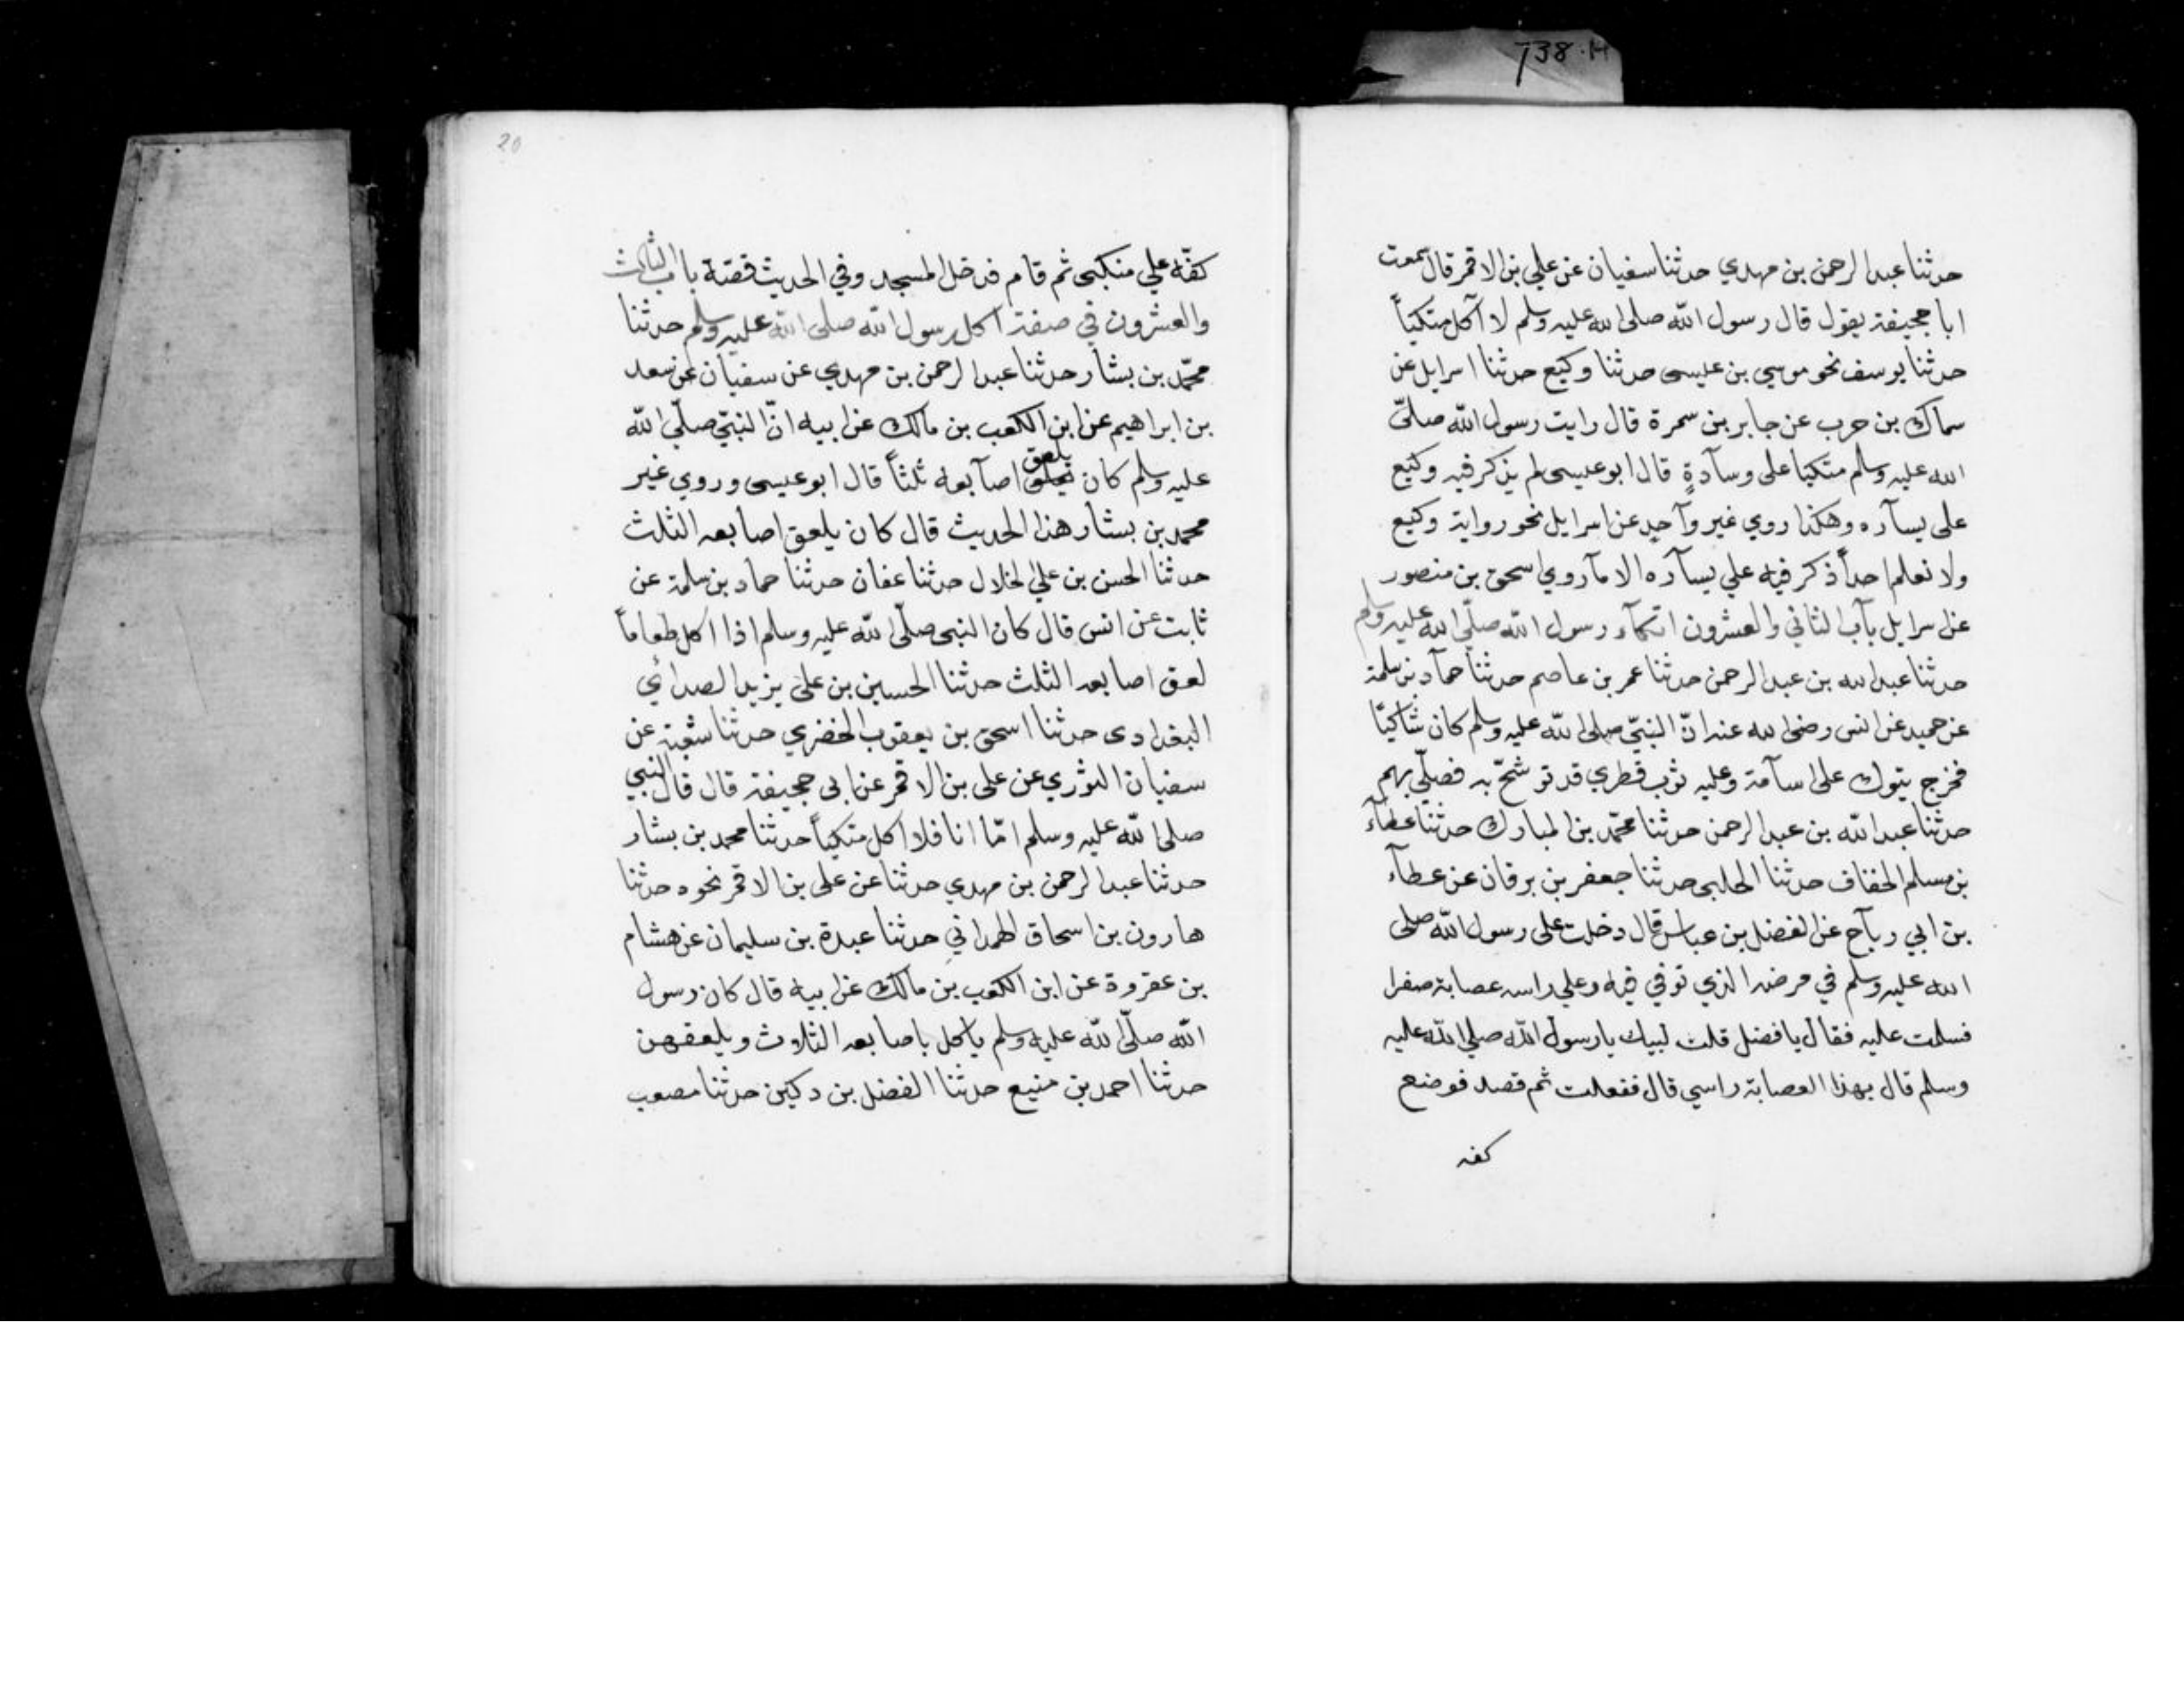 738.H
حدثنا عبد الرحمن بن مهدي حدثنا سفيان عن علي بن الاقمر قال سمعت
ابا جحيفة يقول قال رسول الله صلى الله عليه وسلم لا آكل متكياً
حدثنا يوسف نحو موسي بن عليسى حدثنا وكيع حدثنا اسرايل عن
سماك بن حرب عن جابر بن سمرة قال رايت رسول الله صلىّ
الله عليه وسلم متكيا على وسآدةٍ قال ابو عيسى لم يذكر فيه وكيع
على يسآره وهكذا روي غير وآحدٍ عن اسرايل نحو رواية وكيع
ولا نعلم احداً ذكر فيه علي يسآره الا مآ روي اسحق بن منصور
عن اسرايل بآب الثاني والعشرون اتكآء رسول الله صلىّ الله عليه وسلم
حدثنا عبد الله بن عبد الرحمن حدثنا عمر بن عاصم حدثنا حمآد بن سلمة
عن حميد عن انس رضى الله عنه انّ النبيّ صلى الله عليه وسلم كان شاكيًا
فخرج يتوك على اسآمة وعليه ثوب قطري قد توشحّ به فصلّي بهم
حدثنا عبد الله بن عبد الرحمن حدثنا محمّد بن المبارك حدثنا عطآء
بن مسلم الخفاف حدثنا الحلبي حدثنا جعفر بن برقان عن عطآء
بن ابي ربآح عن الفضل بن عباس قال دخلت على رسول الله صلى
الله عليه وسلم في مرضه الذي توفي فيه وعلي راسه عصابة صفرا
فسلمت عليه فقال يا فضل قلت لبيك يا رسول الله صلي الله عليه
وسلم قال بهذا العصابة راسي قال ففعلت ثم قصد فوضع
كفه
20
كفّه علي منكبى ثم قام فدخل المسجد وفي الحديث قصّة باب الثالث
والعشرون في صفة اكل رسول الله صلى الله عليه وسلم حدثنا
محمّد بن بشار حدثنا عبد الرحمن بن مهدي عن سفيان عن سعد
بن ابراهيم عن ابن الكعب بن مالك عن ابيه انّ النبيّ صلّي الله
عليه وسلم كان يلعق اصآبعه ثلثاً قال ابو عيسى وروي غير
محمد بن بشار هذا الحديث قال كان يلعق اصابعه الثلث
حدثنا الحسن بن علي الخلال حدثنا عفان حدثنا حماد بن سلمة عن
ثابت عن انس قال كان النبى صلّى الله عليه وسلم اذا اكل طعاماً
لعق اصابعه الثلث حدثنا الحسين بن على يزيد الصدائي
البغدادى حدثنا اسحق بن يعقوب الخضري حدثنا شعبة عن
سفيان الثوري عن على بن الاقمر عن ابى جحيفة قال قال النبي
صلى الله عليه وسلم امّا انا فلا اكل متكياً حدثنا محمد بن بشار
حدثنا عبد الرحمن بن مهدي حدثنا عن على بن الاقمر نحوه حدثنا
هارون بن اسحاق الهمداني حدثنا عبدة بن سليمان عن هشام
بن عقروة عن ابن الكعب بن مالك عن ابيه قال كان رسول
الله صلّى الله عليه وسلم ياكل باصابعه الثلاث ويلعقهن
حدثنا احمد بن منيع حدثنا الفضل بن دكين حدثنا مصعب